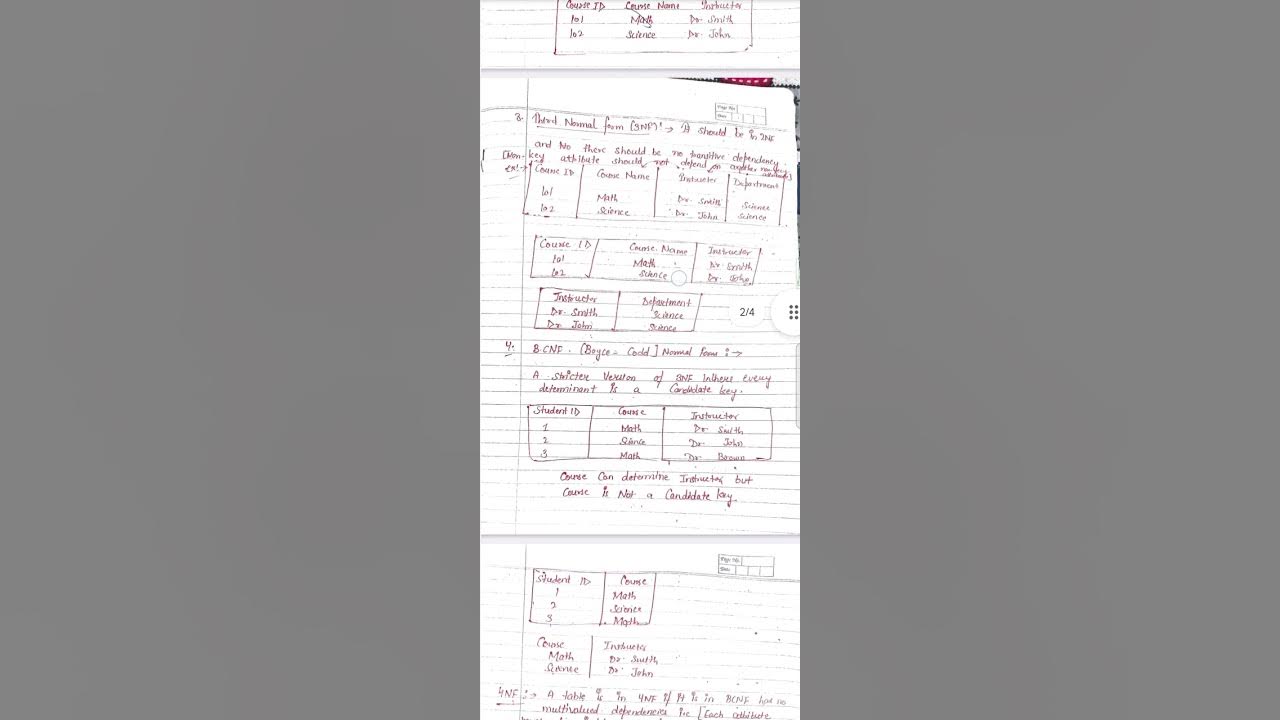 Course ID Course Name Instructor
101 Math Dr. Smith
102 Science Dr. John
Page No.
Date
3. Third Normal form (3NF) :→ It should be in 2NF
and No there should be no transitive dependency.
[Non-key attribute should not depend on another non-key attribute]
ex:→ Course ID Course Name Instructor Department
101 Math Dr. Smith Science
102 Science Dr. John Science
Course ID Course Name Instructor
101 Math Dr. Smith
102 Science Dr. John
Instructor Department
Dr. Smith Science
Dr. John Science
2/4
4. BCNF. [Boyce - Codd] Normal form :→
A stricter Version of 3NF where every
determinant is a Candidate key.
Student ID Course Instructor
1 Math Dr. Smith
2 Science Dr. John
3 Math Dr. Brown
Course Can determine Instructor but
Course is Not a Candidate key.
Page No.
Date
Student ID Course
1 Math
2 Science
3 Math
Course Instructor
Math Dr. Smith
Science Dr. John
4NF :→ A table is in 4NF if it is in BCNF has no
multivalued dependencies i.e [Each attribute